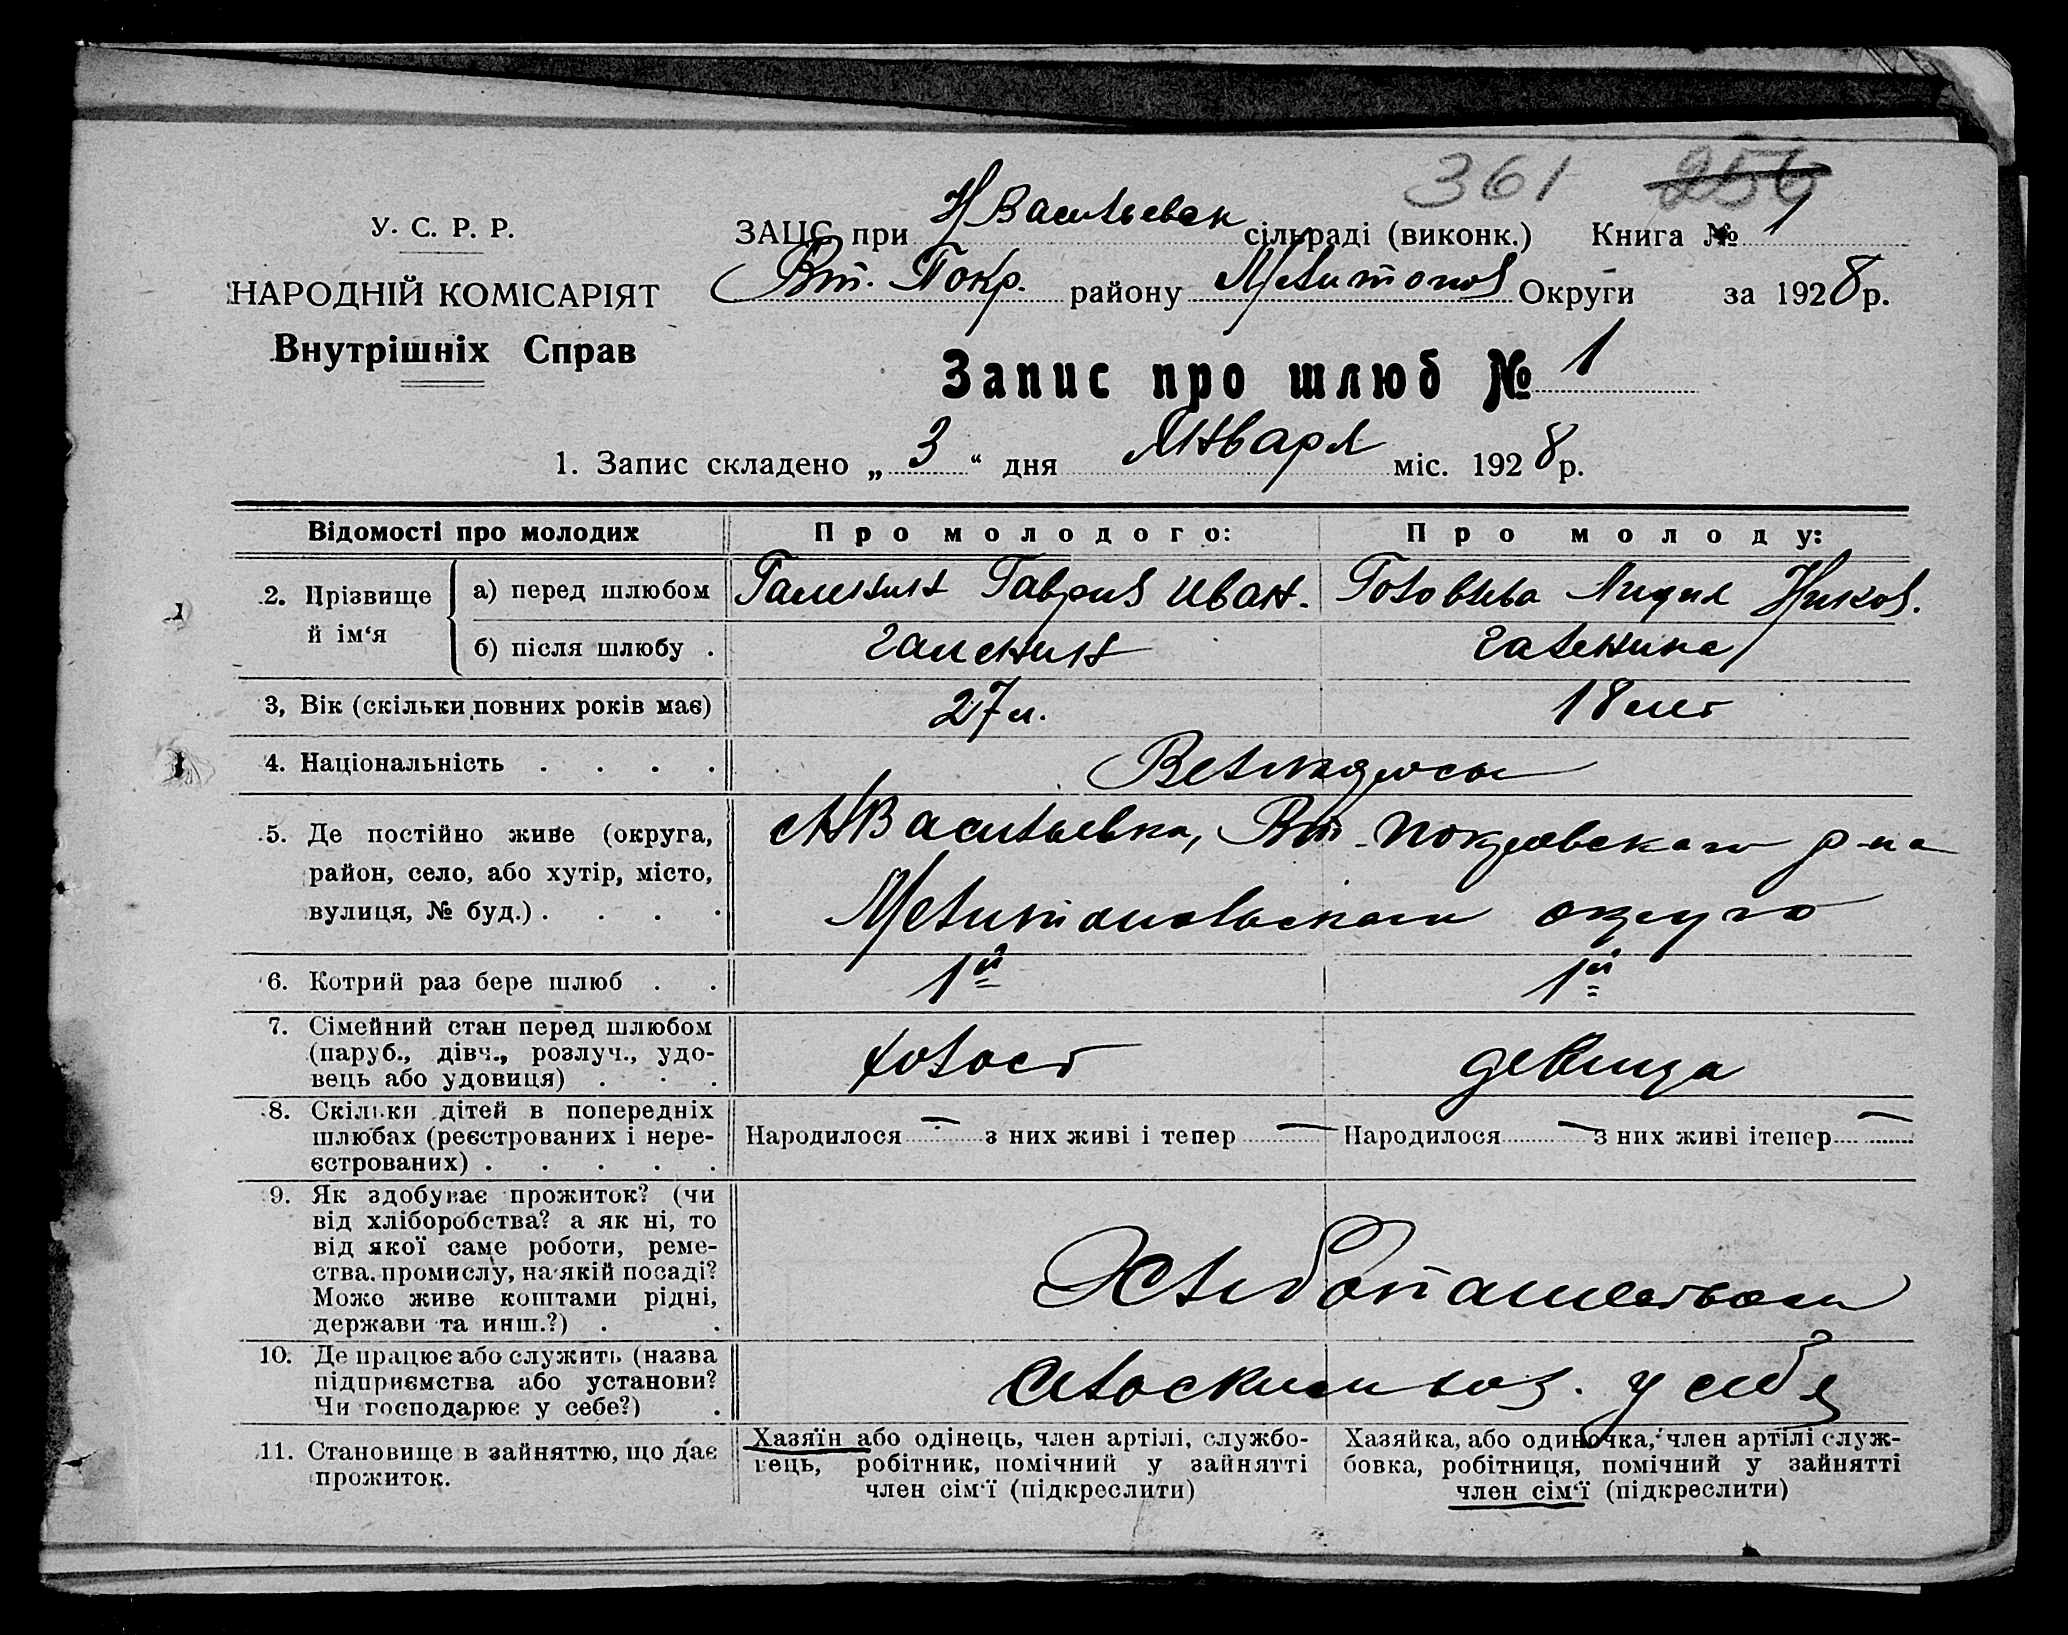 361 256
У. С. Р. Р.
НАРОДНІЙ КОМІСАРІЯТ
Внутрішніх Справ
ЗАЦС при Н Васильевск сільраді (виконк.) Книга № 1
Вт. Покр. району Мелитопол Округи за 1928 р.
Запис про шлюб № 1
1. Запис складено „ 3 “ дня Января міс. 1928 р.
Відомості про молодих Про молодого: Про молоду:
2. Прізвище й ім‘я
а) перед шлюбом Галенин Гаврил Иван. Головнева Лидия Никол.
б) після шлюбу . Галенин Галенина
3, Вік (скільки повних років має) 27 л. 18 лет
4. Національність . . . . Великоросы
5. Де постійно живе (округа, район, село, або хутір, місто, вулиця, № буд.) . . . . Н Васильевка, Вт-Покровского р-на
Мелитопольского округа
6. Котрий раз бере шлюб . . 1й 1й
7. Сімейний стан перед шлюбом (паруб., дівч., розлуч., удовець або удовиця) . . . холост девица
8. Скільки дітей в попередніх шлюбах (реєстрованих і нереєстрованих) . . . . . Народилося — з них живі і тепер — Народилося — з них живі ітепер —
9. Як здобуває прожиток? (чи від хліборобства? а як ні, то від якої саме роботи, ремества, промислу, на якій посаді? Може живе коштами рідні, держави та инш.?) . . Хлебопашеством
10. Де працює або служить (назва підприємства або установи? Чи господарює у себе?) . Сельским хоз. у себя
11. Становище в зайняттю, що дає прожиток.
Хазяїн або одінець, член артілі, службовець, робітник, помічний у зайнятті член сім‘ї (підкреслити)
Хазяйка, або одиночка, член артілі службовка, робітниця, помічний у зайнятті член сім‘ї (підкреслити)